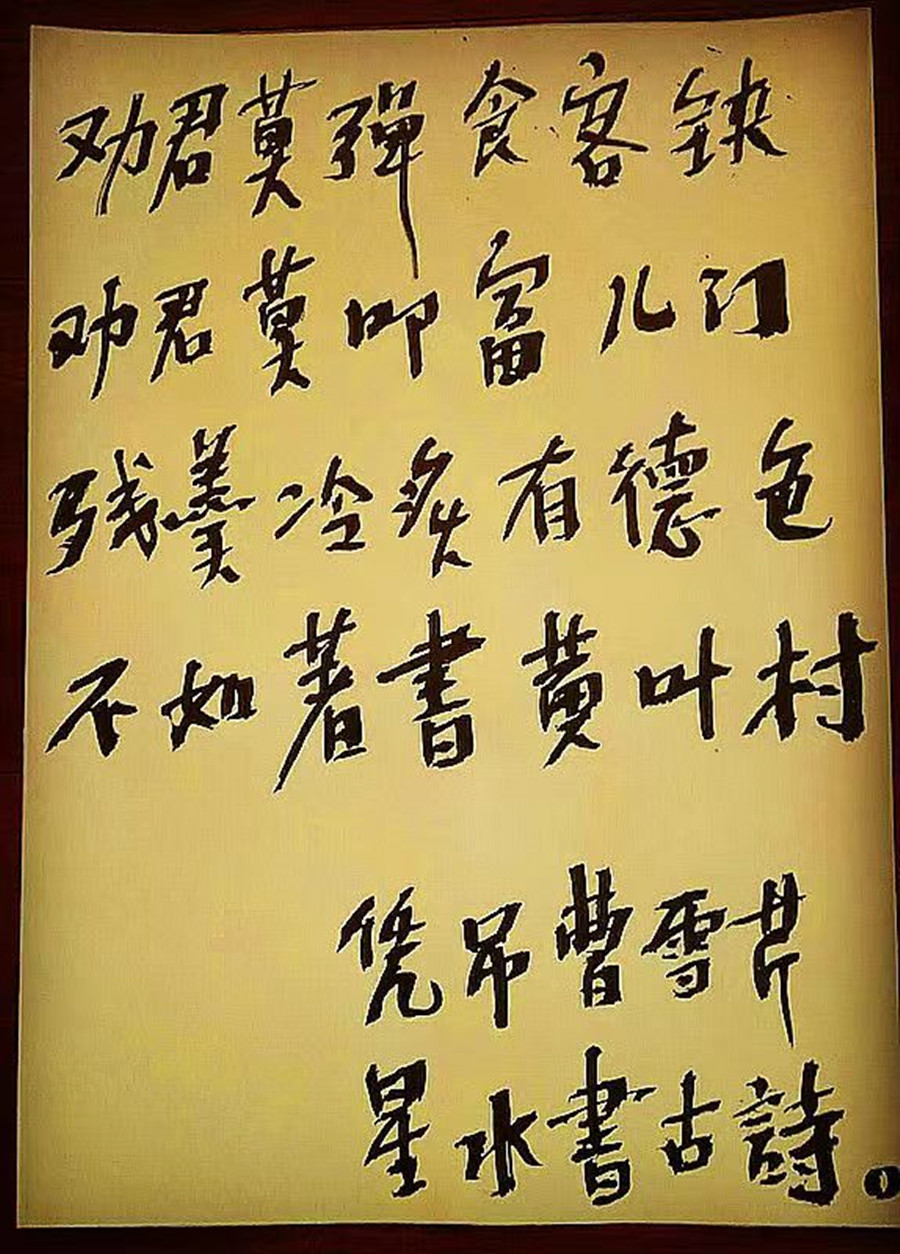 劝君莫弹食客铗
劝君莫叩富儿门
残羹冷炙有德色
不如著書黄叶村
凭吊曹雪芹
星水書古詩